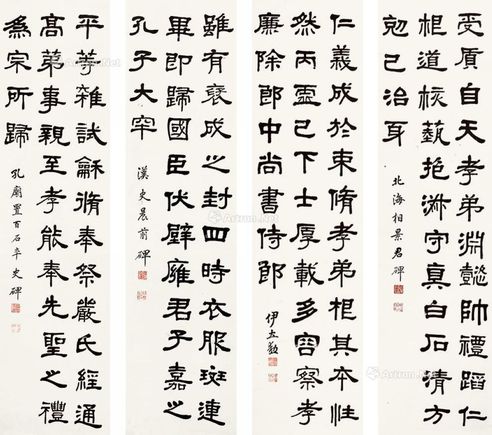 受質自天孝弟淵懿帥禮蹈仁
根道核藝抱淑守真白石清方
勊己治身
北海相景君碑
仁義成於束脩孝弟根其本性
然丙靈已下士厚載多容察孝
廉除郎中尚書侍郎
伊立勳
雖有褒成之封四時衣服斑連
畢即歸國臣伏辟廱君子嘉之
孔子大宰
漢史晨前碑
平等雜試龢脩奉祭嚴氏經通
高弟事親至孝能奉先聖之禮
為宗所歸
孔廟置百石卒史碑